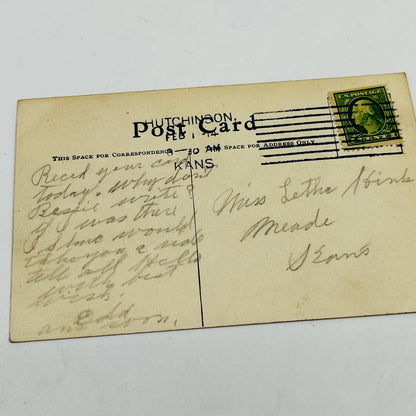 HUTCHINSON,
FEB 1
8-30 AM
KANS.
U.S. POSTAGE
Post Card
THIS SPACE FOR CORRESPONDENCE
SPACE FOR ADDRESS ONLY.
Recd your card
today. Why dont
Bessie write?
If I was there
I sure would
take you a ride
tell all Hello
with best
wish.
and soon.
Miss Letha Hink
Meade
Kans